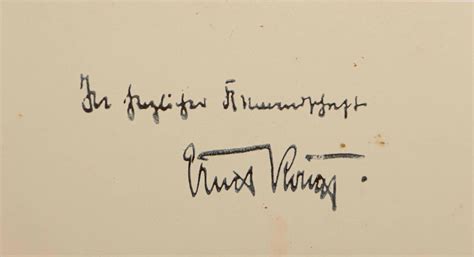 In herzlicher Freundschaft
Ernst